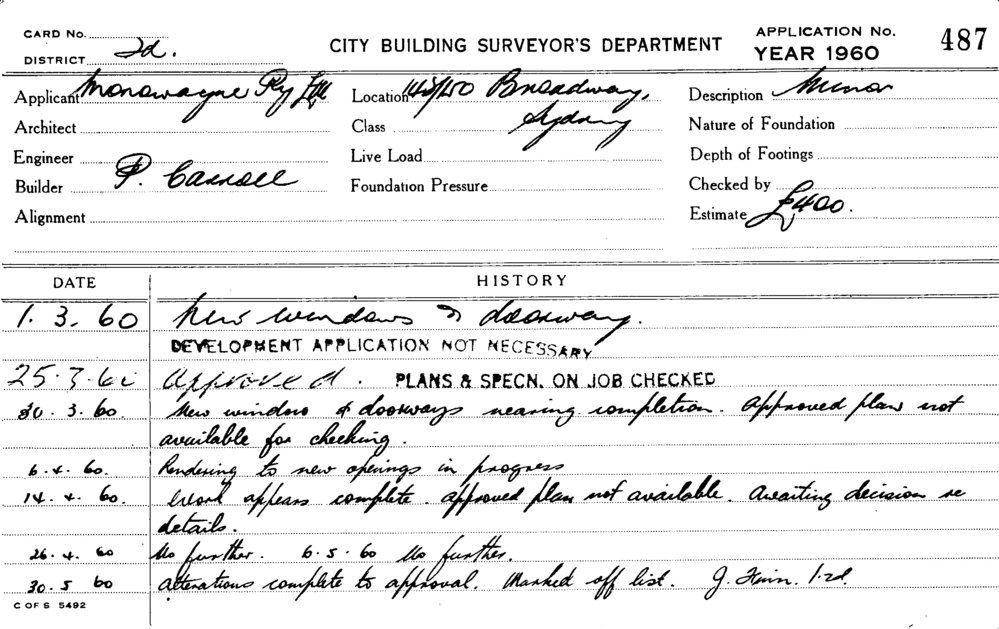 CARD No.
DISTRICT 2d.
CITY BUILDING SURVEYOR'S DEPARTMENT
APPLICATION No. 487
YEAR 1960
Applicant Monowayne Pty Ltd
Location 148/150 Broadway,
Sydney
Description Minor
Architect
Class
Nature of Foundation
Engineer
Live Load
Depth of Footings
Builder P. Carroll
Foundation Pressure
Checked by
Alignment
Estimate £400.
DATE HISTORY
1. 3. 60 New windows & doorway.
DEVELOPMENT APPLICATION NOT NECESSARY
25.3.60 Approved. PLANS & SPECN. ON JOB CHECKED
30.3.60 New window & doorways nearing completion. Approved plans not
available for checking.
6.4.60. Rendering to new openings in progress
14.4.60. Work appears complete. Approved plan not available. Awaiting decision re
details.
26.4.60 No further. 6.5.60 No further.
30.5 60 Alterations complete to approval. Marked off list. J.
C OF S 5492